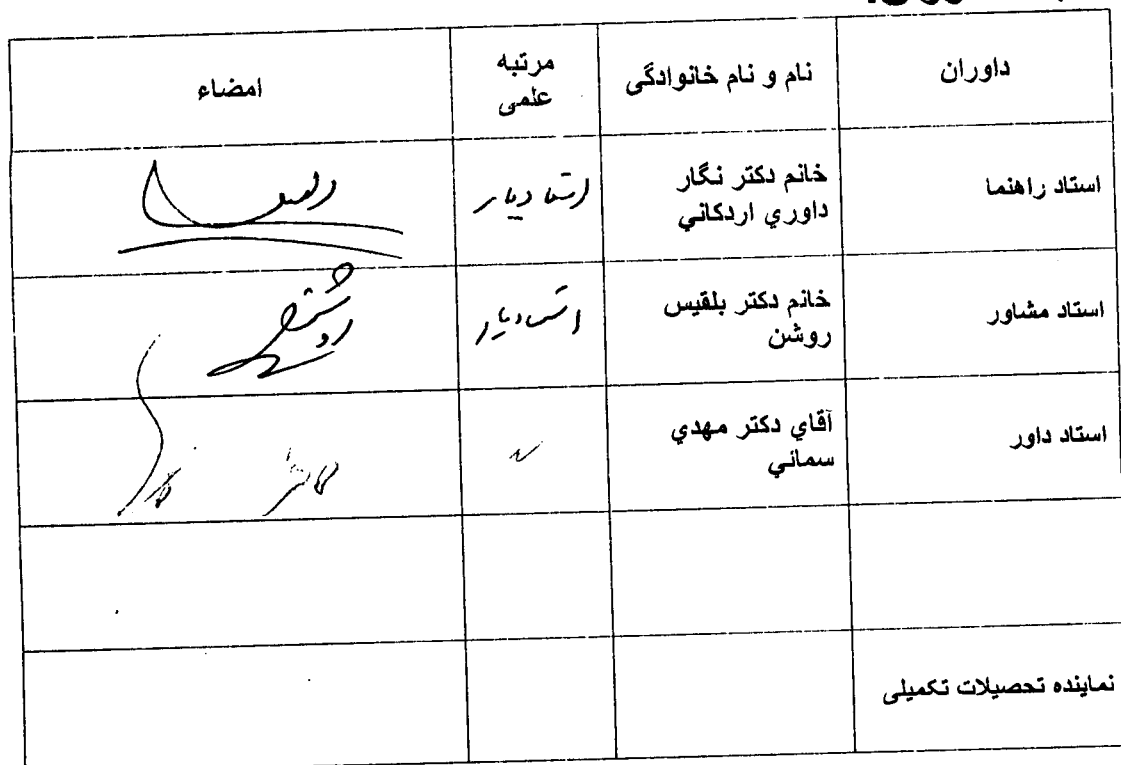 داوران
نام و نام خانوادگی
مرتبه
علمی
امضاء
استاد راهنما
خانم دکتر نگار
داوري اردکاني
استادیار
استاد مشاور
خانم دکتر بلقیس
روشن
استادیار
روشن
استاد داور
آقاي دکتر مهدي
سماني
نماینده تحصیلات تکمیلی